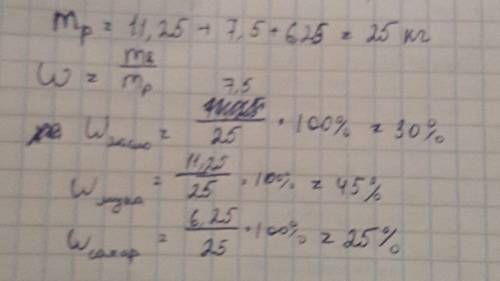 m_р = 11,25 + 7,5 + 6,25 = 25 кг
ω = mв/m_р
ω_масло = 7,5/25 · 100% = 30%
ω_мука = 11,25/25 · 100% = 45%
ω_сахар = 6,25/25 · 100% = 25%